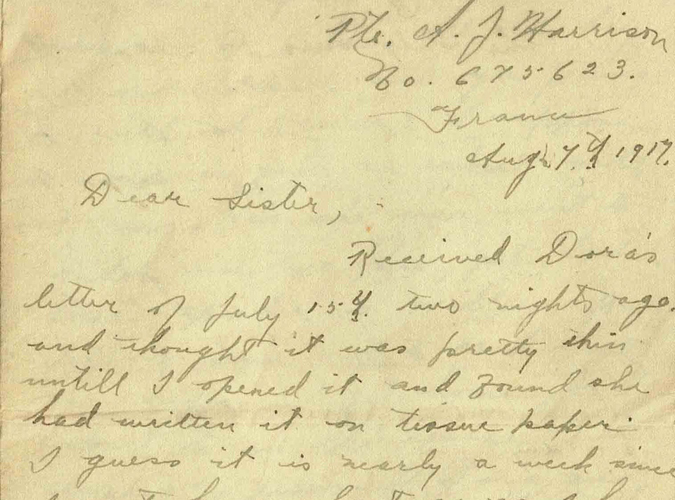 Pte. A. J. Harrison
No. 675623.
France
Aug. 7th 1917.
Dear Sister,
Received Dora's
letter of July 15th. two nights ago.
and thought it was pretty thin
untill I opened it and found she
had written it on tissue paper.
I guess it is nearly a week since